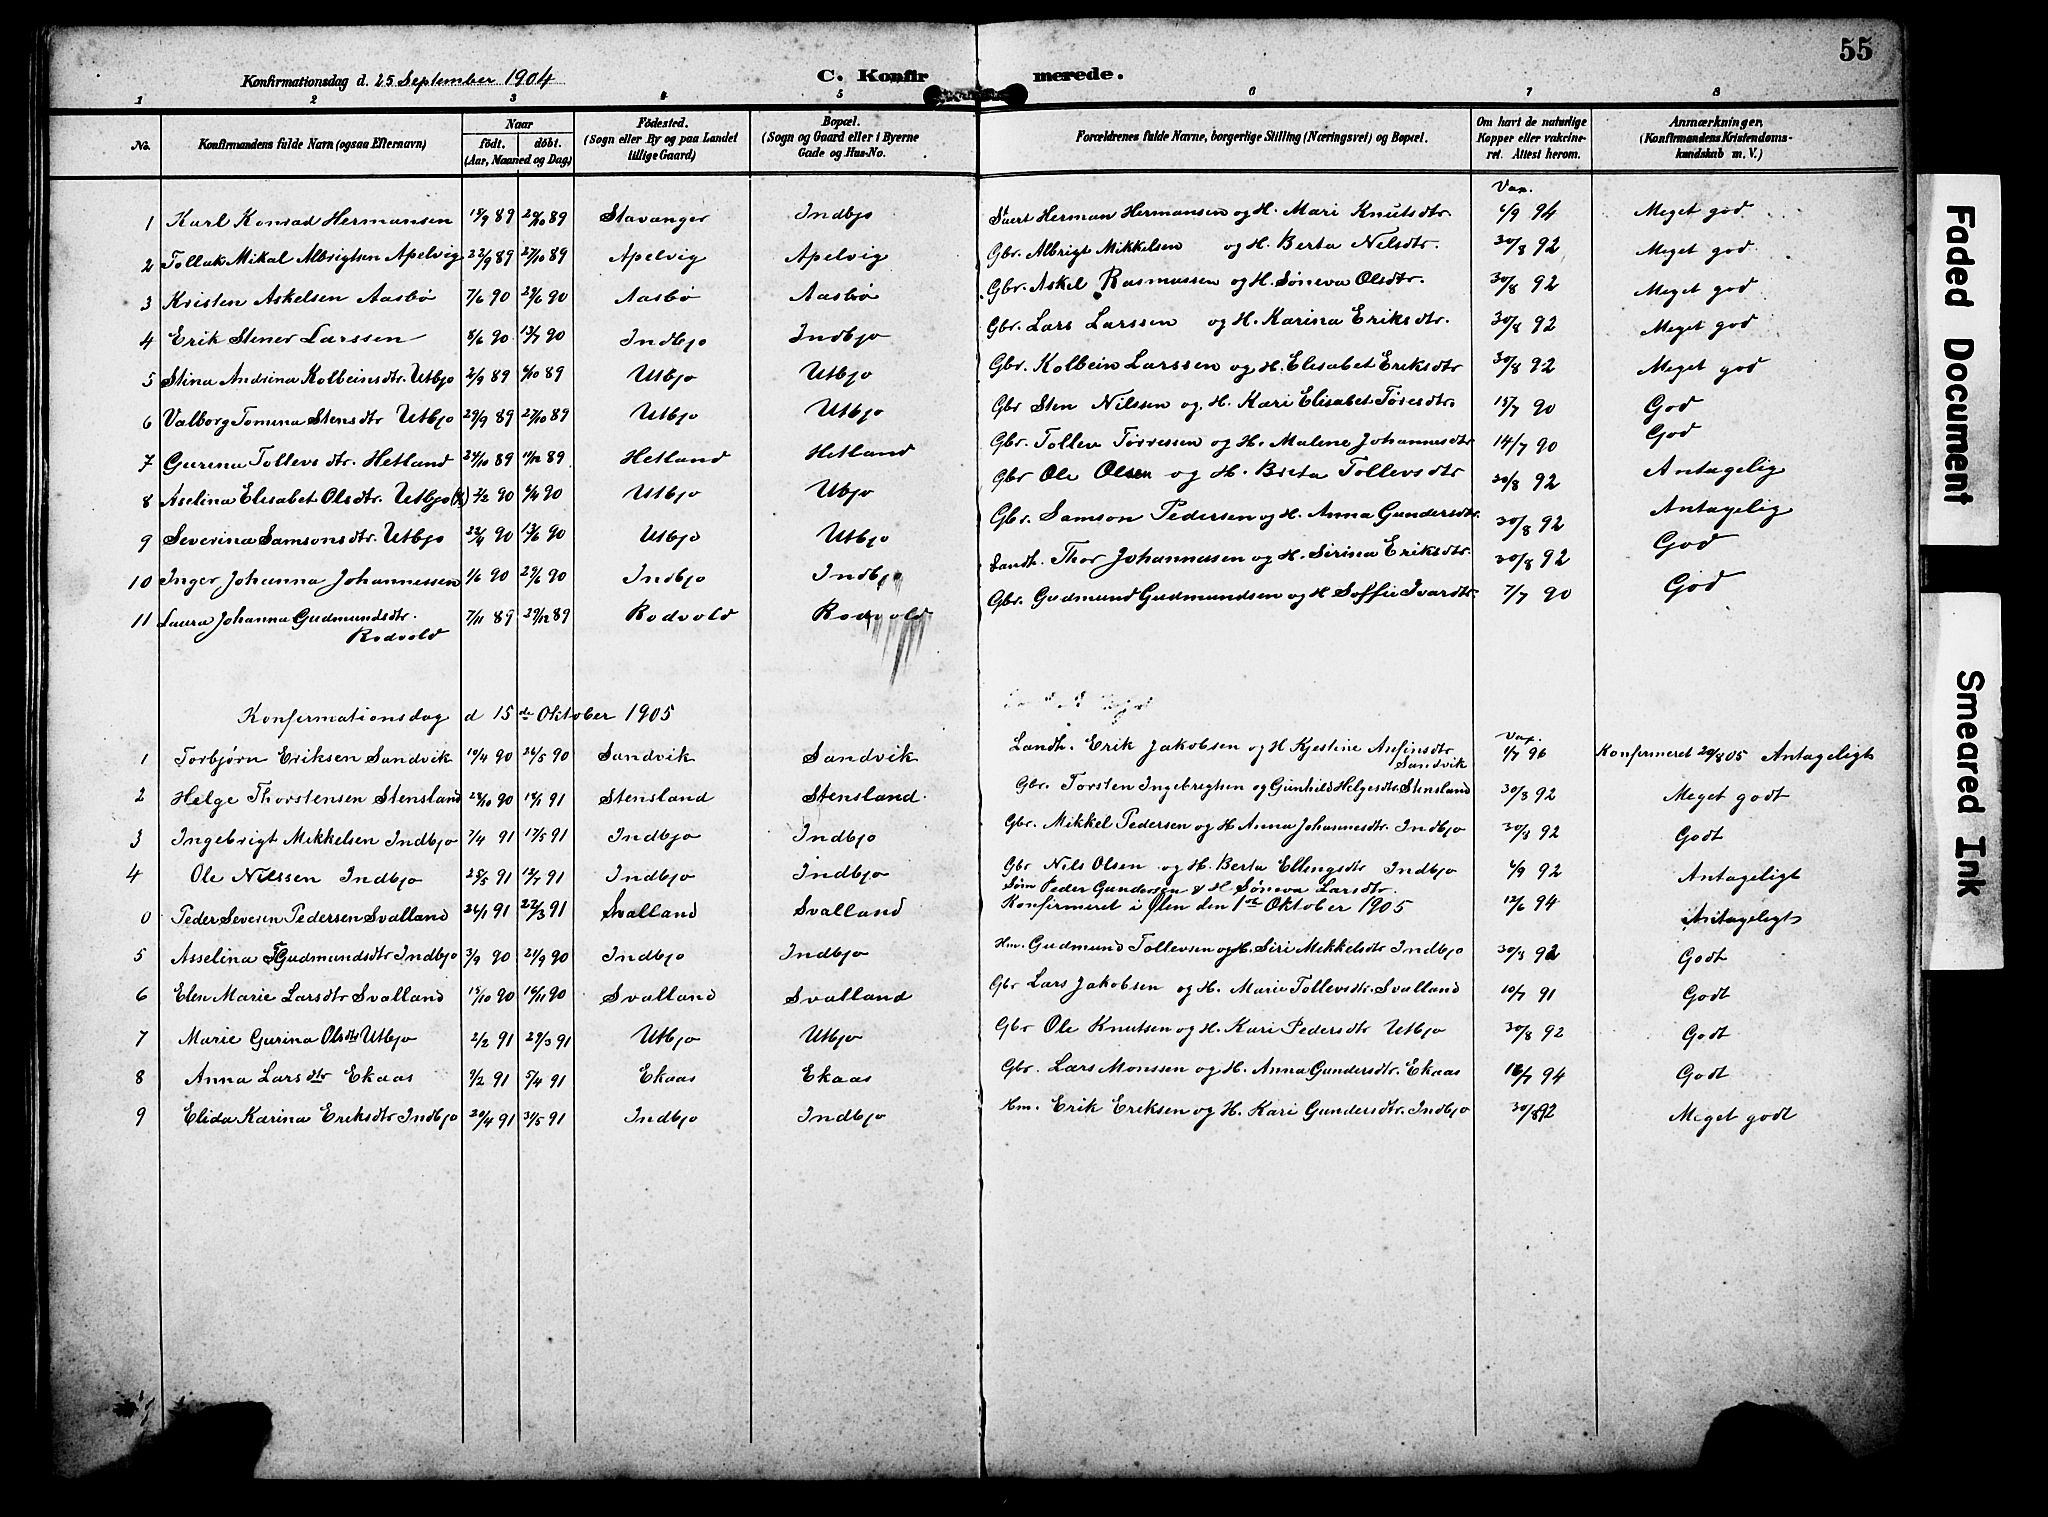 55
Konfirmationsdag d. 25 September 1904 C. Konfirmerede.
1 2 3 4 5 6 7 8
No. Konfirmandens fulde Navn (ogsaa Efternavn) Naar født. døbt. (Aar, Maaned og Dag) Fødested. (Sogn eller By og paa Landet tillige Gaard) Bopæl. (Sogn og Gaard eller i Byerne Gade og Hus-No. Forældrenes fulde Navne, borgerlige Stilling (Næringsvei) og Bopæl. Om havt de naturlige Kopper eller vakcineret. Attest herom. Anmærkninger, (Konfirmandens Kristendomskundskab m. V.)
Vax.
1 Karl Konrad Hermansen 15/9 89 20/10 89 Stavanger Indbjo Herman Hermansen og H. Mari Knutsdtr 6/9 94 Meget god
2 Tollak Mikal Albrigtsen Apelvig 22/9 89 27/10 89 Apelvig Apelvig Gbr. Albrigt Mikkelsen og H. Berta Nelsdtr. 30/8 92 Meget god
3 Kristen Askelsen Aasbø 7/6 90 29/6 90 Aasbø Aasbø Gbr. Askel Rasmussen og H. Søneva Olsdtr. 30/8 92 Meget god
4 Erik Stener Larssen 8/6 90 13/7 90 Indbjo Indbjo Gbr. Lars Larssen og H. Karina Eriksdtr. 30/8 92 Meget god
5 Stina Andrina Kolbeinsdtr. Utbjo 2/9 89 6/10 89 Utbjo Utbjo Gbr. Kolbein Larssen og H. Elisabet Eriksdtr 30/8 92 Meget god
6 Valborg Tomina Stensdtr Utbjo 29/9 89 27/10 89 Utbjo Utbjo Gbr Sten Nilssen og H. Kari Elisabet Tøresdtr. 15/7 90 God
7 Gurina Tollevsdtr. Hetland 24/10 89 89 Hetland Hetland Gbr. Tollev Tørressen og H. Malene Johannesdtr 14/7 90 God
8 Aselina Elisabet Olsdtr. Utbjo 2/2 90 6/4 90 Utbjo Ubjo Gbr Ole Olsen og H. Brita Tollevsdtr 30/8 92 Antagelig
9 Severina Samsonsdtr. Utbjo 22/4 90 15/6 90 Utbjo Utbjo Gbr. Samson Pedersen og H. Anna Gundersdtr. 30/8 92 Antagelig
10 Inger Johanna Johannessen 1/6 90 29/6 90 Indbjo Indbjo Landh. Thor Johannesen og H. Sirina Eriksdtr. 30/8 92 God
11 Laura Johanna Gudmundsdtr. 7/11 89 29/12 89 Rodvold Rodvold Gbr. Gudmund Gudmundsen og H Soffie Ivarsdtr. 7/7 90 God
Rodvold
Konfirmationsdag d 15de Oktober 1905
Vax.
1 Torbjørn Eriksen Sandvik 10/4 90 26/5 90 Sandvik Sandvik Landh. Erik Jakobsen og H Kjestine Anfinsdtr 1/7 96 Konfirmeret 20/8 05 Antageligt
Sandvik
2 Helge Thorstensen Stensland 28/10 90 18/1 91 Stensland Stensland. Gbr. Torsten Ingebrigtsen og Gunhild Helgesdtr. Stensland 30/8 92 Meget godt
3 Ingebrigt Mikkelsen Indbjo 7/4 91 17/5 91 Indbjo Indbjo Gbr. Mikkel Pedersen og H Anna Johannesdtr. Indbjo 30/8 92 Godt
4 Ole Nilssen Indbjo 25/5 91 12/7 91 Indbjo Indbjo Gbr Nils Olsen og H. Berta Ellingsdtr Indbjo 6/9 92 Antageligt
Søm Peder Gundersen & H Søneva Larsdtr.
0 Peder Severin Pedersen Svalland 26/1 91 22/3 91 Svalland Svalland Konfirmeret i Ølen den 1ste Oktober 1905 12/6 94 Antageligt
5 Asselina Gudmundsdtr Indbjo 3/9 90 21/9 90 Indbjo Indbjo Hm. Gudmund Tollevsen og H. Siri Mikkelsdtr Indbjo 30/8 92 Godt
6 Elen Marie Larsdtr Svalland 15/10 90 16/11 90 Svalland Svalland Gbr Lars Jakobsen og H. Marie Tollevsdtr. Svalland 10/7 91 Godt
7 Marie Gurina Olsdtr Utbjo 2/2 91 29/3 91 Utbjo Utbjo Gbr Ole Knutsen og H. Kari Pedersdtr Utbjo 30/8 92 Godt
8 Anna Larsdtr Ekaas 7/2 91 5/4 91 Ekaas Ekaas Gbr. Lars Monssen og H. Anna Gundersdtr. Ekaas 94 Godt
9 Elida Karina Eriksdtr Indbjo 20/4 91 31/5 91 Indbjo Indbjo Hm. Erik Eriksen og H. Kari Gundersdtr. Indbjo 30/8 92 Meget godt
Faded Document
Smeared Ink